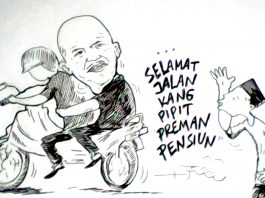 ...
SELAMAT
JALAN
KANG
PIPIT
PREMAN
PENSIUN